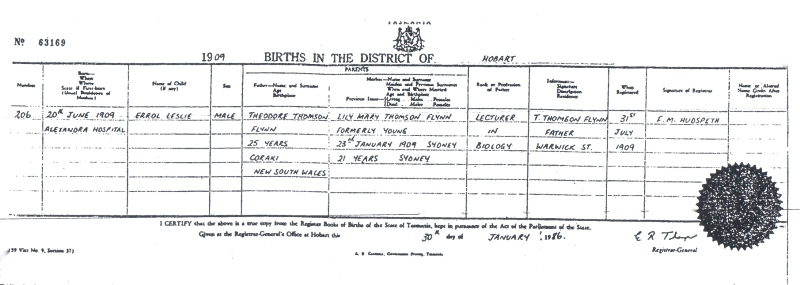 TASMANIA
No 63169
1909 BIRTHS IN THE DISTRICT OF HOBART
PARENTS
Number
Born— When Where State if First-born
Name of Child (if any)
Sex
Father—Name and Surname Age Birthplace
Mother—Name and Surname Maiden and Previous Surnames When and Where Married Age and Birthplace
Previous Issue— Living Males Females Dead Males Females
Rank or Profession of Father
Informant— Signature Description Residence
When Registered
Signature of Registrar
Name, or Altered Name, Given After Registration
206 20th JUNE 1909 ERROL LESLIE MALE THEODORE THOMSON LILY MARY THOMSON FLYNN LECTURER T. THOMSON FLYNN 31st F. M. HUDSPETH
ALEXANDRA HOSPITAL FLYNN FORMERLY YOUNG IN FATHER JULY
25 YEARS 23rd JANUARY 1909 SYDNEY BIOLOGY WARWICK ST. 1909
CORAKI 21 YEARS SYDNEY
NEW SOUTH WALES
I CERTIFY that the above is a true copy from the Register Books of Births of the State of Tasmania, kept in pursuance of the Act of the Parliament of the State.
Given at the Registrar-General's Office at Hobart this 30th day of JANUARY 1986.
Registrar-General
(59 Vict No. 9, Section 37)
Government Printer, Tasmania